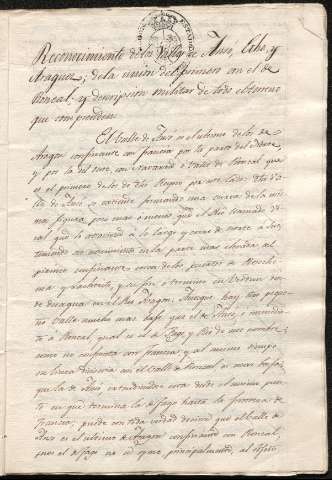 Reconocimiento de los Valles de Anso, Echo, y
Aragues; de la union del primero con el de
Roncal, y descripcion militar de todo el terreno
que comprenden
El Valle de Anso es el ultimo de los de
Aragon confinante con francia por la parte del
y por la del este con Navarra o Valle de Roncal que
es el primero de los de dho Reyno por este lado: dho Va-
lle de Anso, se extiende formando una cuenca de la mis-
ma figura, poco mas o menos, que el Rio llamado Ve-
ral que lo atraviesa a lo largo y corre de norte a Sur;
teniendo su nacimiento en la parte mas elevada al
pie confinante cerca de los puertos de
y y su fin o termino en Verdun don-
de desagua en el Rio Aragon. Aunque hay otro peque-
ño Valle mucho mas bajo que el de Anso, e inmedia-
to a Roncal, qual es el de Fago y Rio de este nombre,
como no confronta con francia y al mismo tiempo
su linea divisoria con el Valle de Roncal es mas baja
que la de Anso extendiendose esta desde el mismo pun-
to en que termina la de fago hasta la frontera de
Francia, puede con toda verdad decirse que el Valle de
Anso es el ultimo de Aragon confinante con Roncal,
pues el de fago no es sino principalmente, al